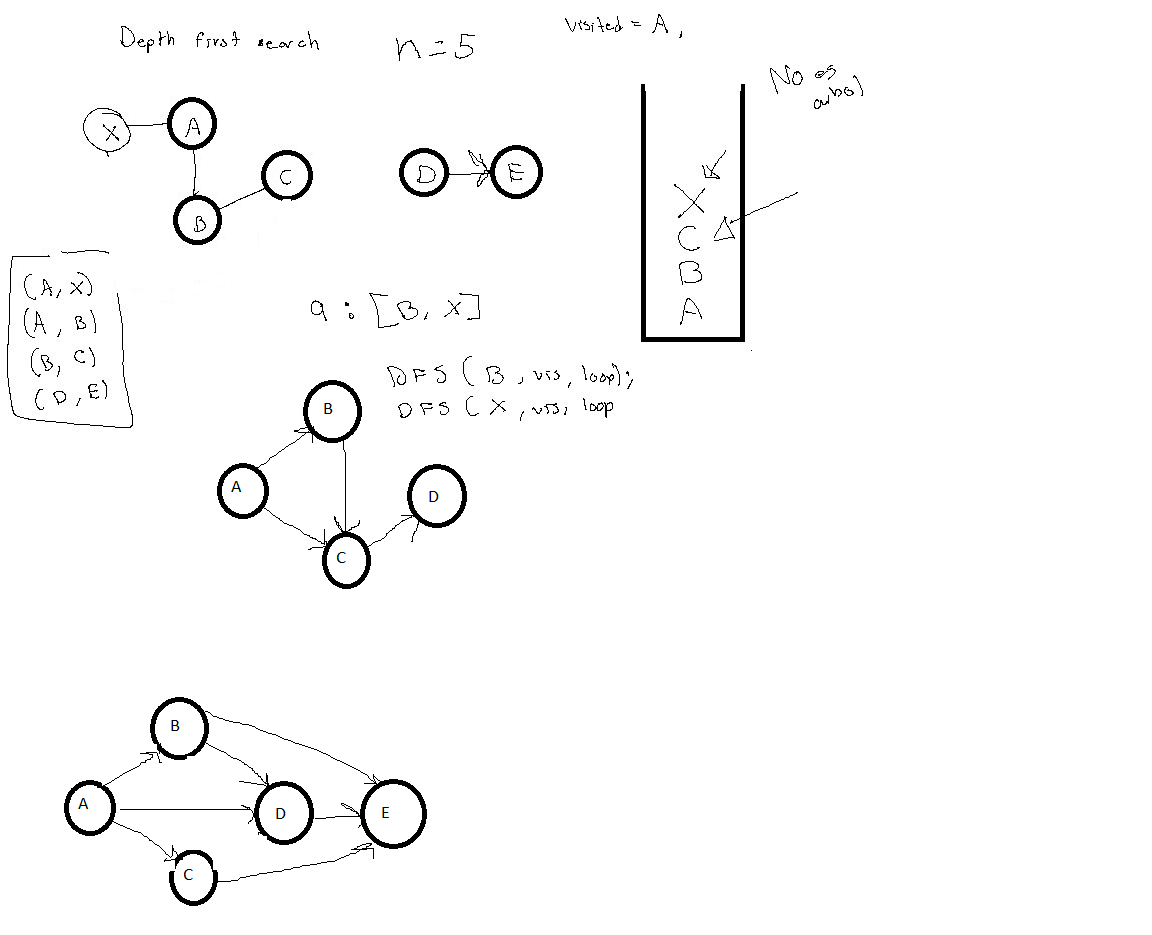 Depth first search
n=5
visited = A,
No es
arbol
X
A
B
C
D
E
X
C
B
A
(A, X)
(A, B)
(B, C)
(D, E)
a : [B, X]
DFS (B, vis, loop);
DFS (X, vis, loop
B
A
D
C
B
A
D
E
C